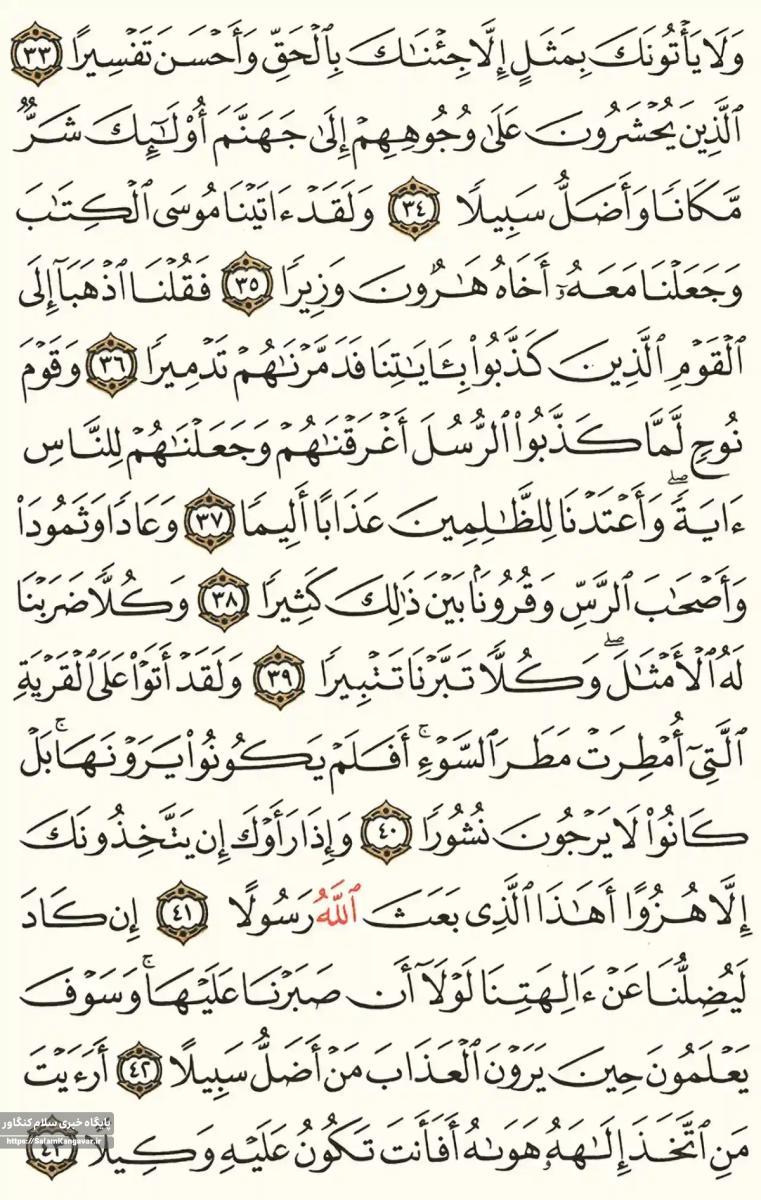 وَلَا يَأْتُونَكَ بِمَثَلٍ إِلَّا جِئْنَٰكَ بِٱلْحَقِّ وَأَحْسَنَ تَفْسِيرًا ٣٣
ٱلَّذِينَ يُحْشَرُونَ عَلَىٰ وُجُوهِهِمْ إِلَىٰ جَهَنَّمَ أُو۟لَٰٓئِكَ شَرٌّ
مَّكَانًا وَأَضَلُّ سَبِيلًا ٣٤ وَلَقَدْ ءَاتَيْنَا مُوسَى ٱلْكِتَٰبَ
وَجَعَلْنَا مَعَهُۥٓ أَخَاهُ هَٰرُونَ وَزِيرًا ٣٥ فَقُلْنَا ٱذْهَبَآ إِلَى
ٱلْقَوْمِ ٱلَّذِينَ كَذَّبُوا۟ بِـَٔايَٰتِنَا فَدَمَّرْنَٰهُمْ تَدْمِيرًا ٣٦ وَقَوْمَ
نُوحٍ لَّمَّا كَذَّبُوا۟ ٱلرُّسُلَ أَغْرَقْنَٰهُمْ وَجَعَلْنَٰهُمْ لِلنَّاسِ
ءَايَةً ۖ وَأَعْتَدْنَا لِلظَّٰلِمِينَ عَذَابًا أَلِيمًا ٣٧ وَعَادًا وَثَمُودَا۟
وَأَصْحَٰبَ ٱلرَّسِّ وَقُرُونًۢا بَيْنَ ذَٰلِكَ كَثِيرًا ٣٨ وَكُلًّا ضَرَبْنَا
لَهُ ٱلْأَمْثَٰلَ ۖ وَكُلًّا تَبَّرْنَا تَتْبِيرًا ٣٩ وَلَقَدْ أَتَوْا۟ عَلَى ٱلْقَرْيَةِ
ٱلَّتِىٓ أُمْطِرَتْ مَطَرَ ٱلسَّوْءِ ۚ أَفَلَمْ يَكُونُوا۟ يَرَوْنَهَا ۚ بَلْ
كَانُوا۟ لَا يَرْجُونَ نُشُورًا ٤٠ وَإِذَا رَأَوْكَ إِن يَتَّخِذُونَكَ
إِلَّا هُزُوًا أَهَٰذَا ٱلَّذِى بَعَثَ ٱللَّهُ رَسُولًا ٤١ إِن كَادَ
لَيُضِلُّنَا عَنْ ءَالِهَتِنَا لَوْلَآ أَن صَبَرْنَا عَلَيْهَا ۚ وَسَوْفَ
يَعْلَمُونَ حِينَ يَرَوْنَ ٱلْعَذَابَ مَنْ أَضَلُّ سَبِيلًا ٤٢ أَرَءَيْتَ
مَنِ ٱتَّخَذَ إِلَٰهَهُۥ هَوَىٰهُ أَفَأَنتَ تَكُونُ عَلَيْهِ وَكِيلًا ٤٣
پایگاه خبری سلام کنگاور
https://SalamKangavar.ir